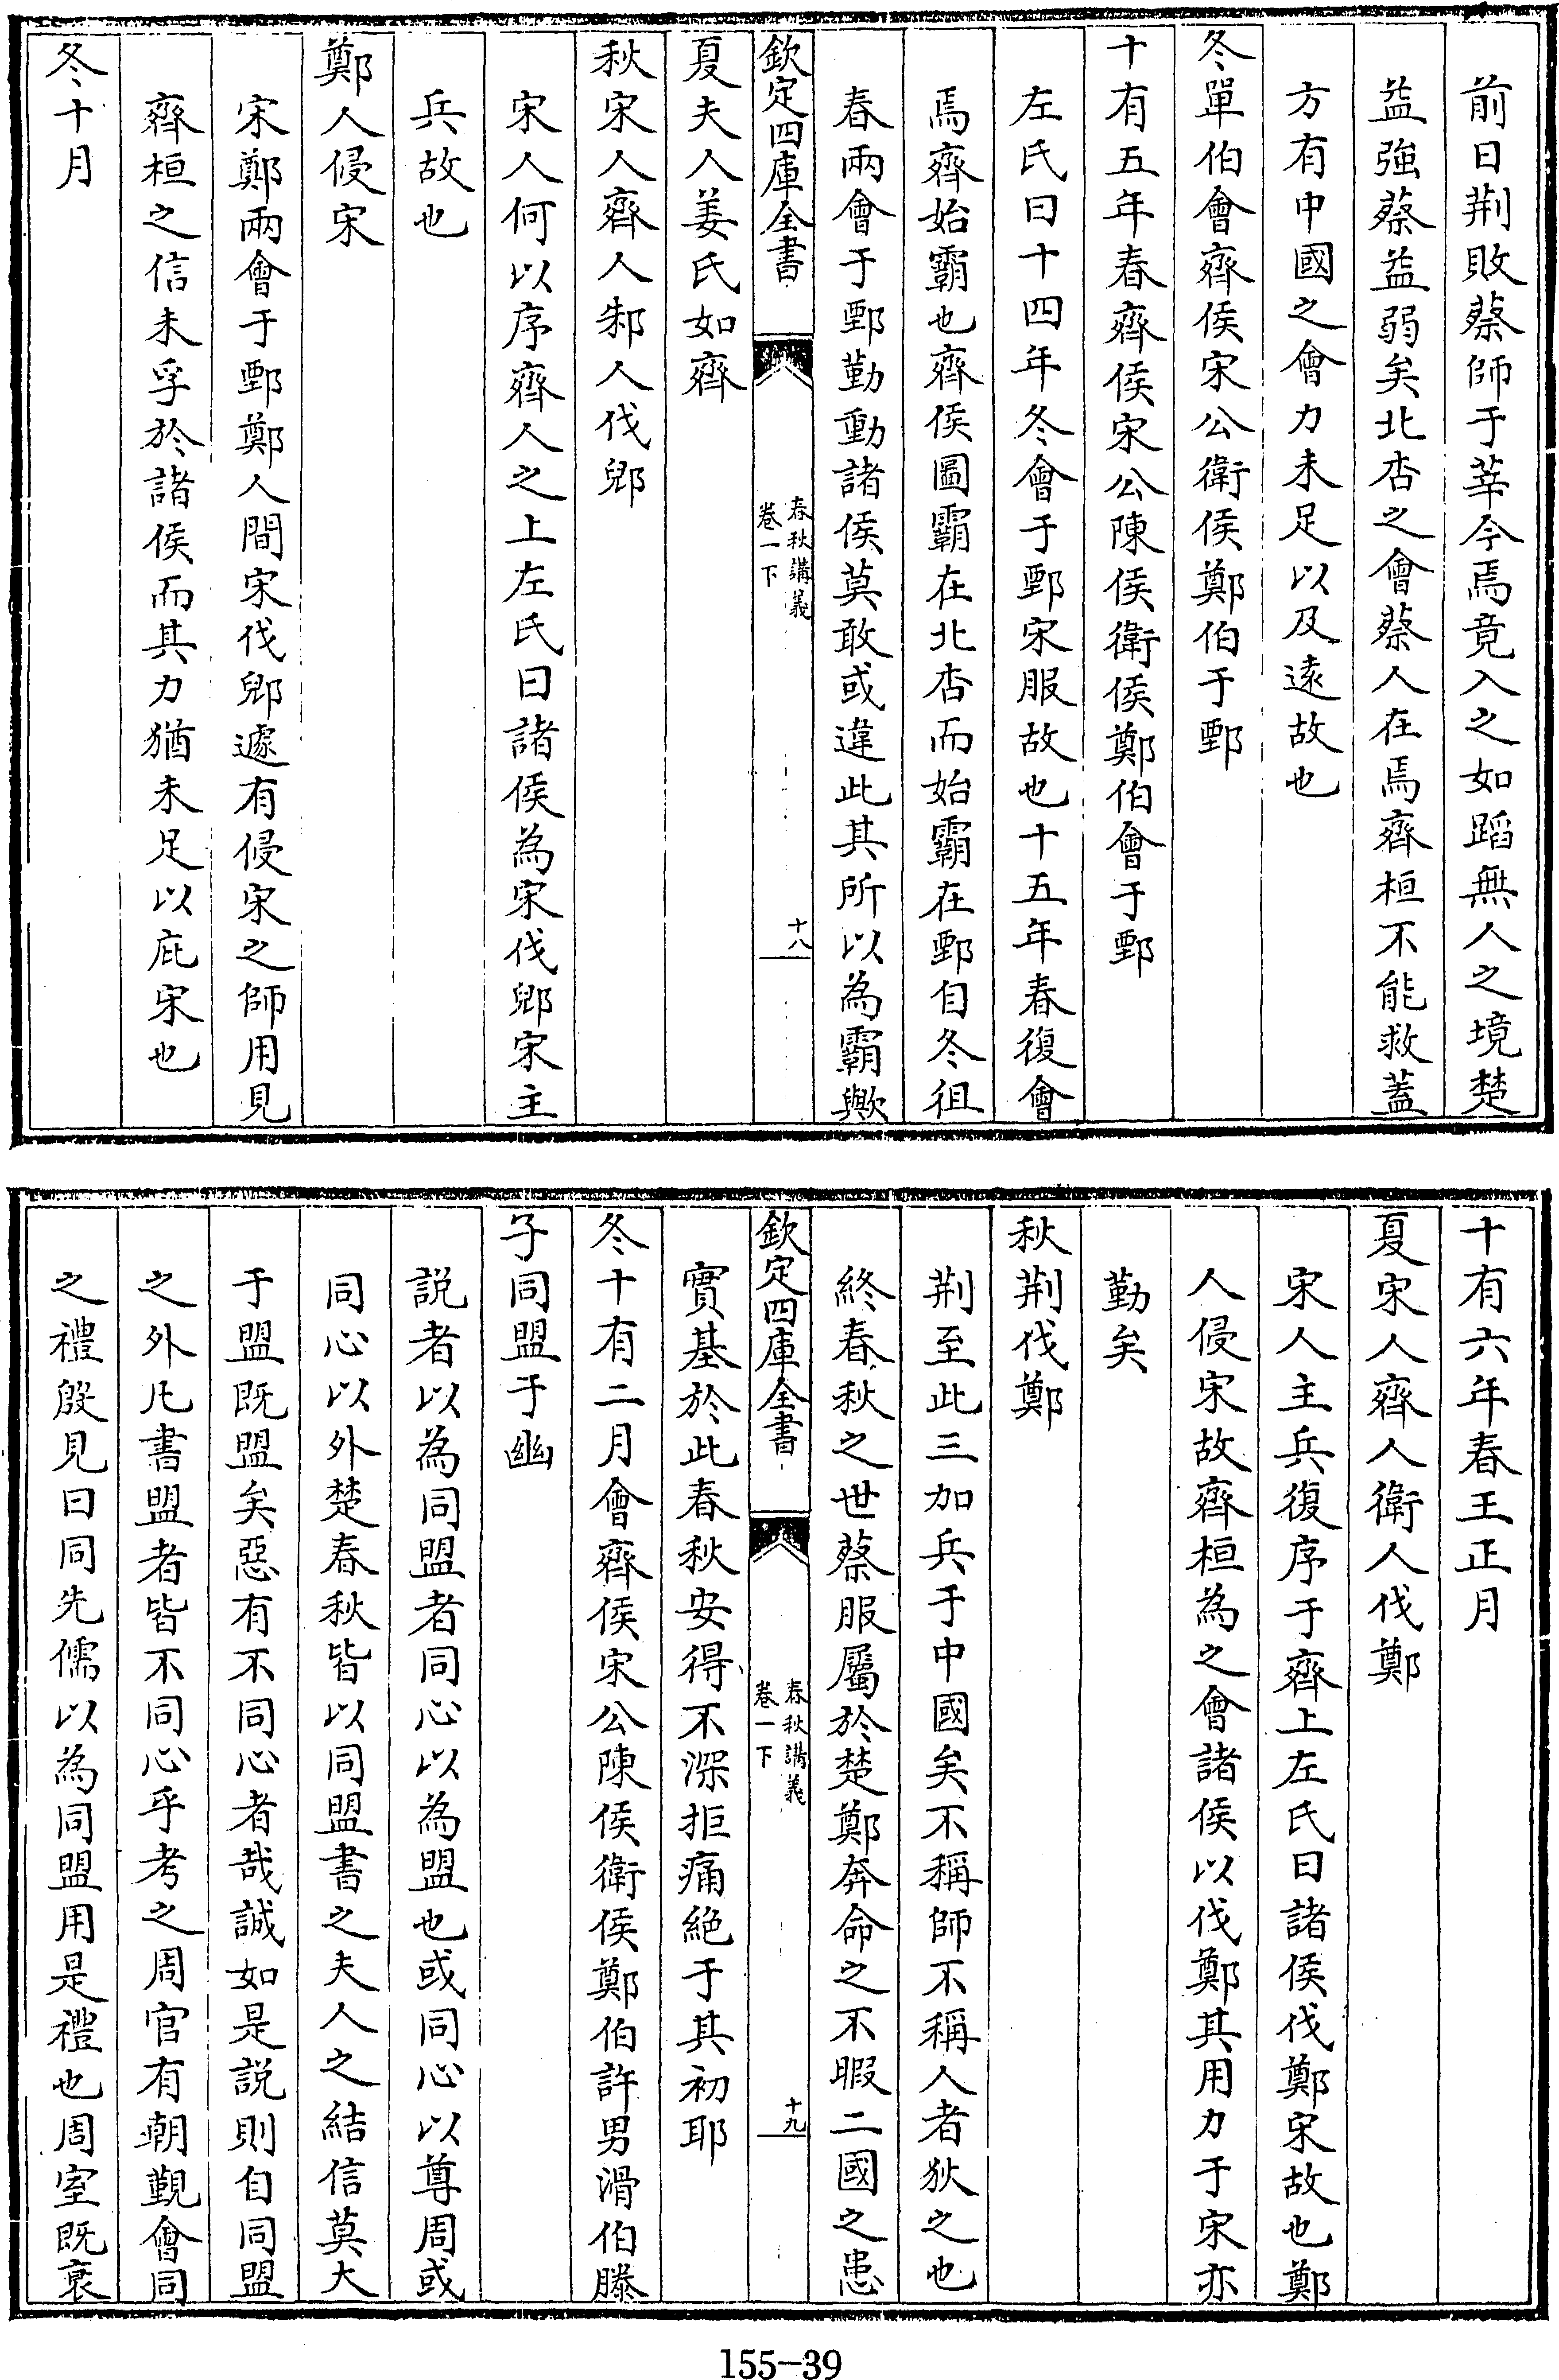 前日荆敗蔡師于莘今焉竟入之如蹈無人之境楚
益強蔡益弱矣北杏之會蔡人在焉齊桓不能救蓋
方有中國之會力未足以及逺故也
冬單伯會齊侯宋公衛侯鄭伯于鄄
十有五年春齊侯宋公陳侯衛侯鄭伯會于鄄
左氏曰十四年冬會于鄄宋服故也十五年春復會
焉齊始霸也齊侯圖霸在北杏而始霸在鄄自冬徂
春兩會于鄄勤動諸侯莫敢或違此其所以為霸歟
欽定四庫全書
春秋講義
卷一下
十八
夏夫人姜氏如齊
秋宋人齊人邾人伐郳
宋人何以序齊人之上左氏曰諸侯為宋伐郳宋主
兵故也
鄭人侵宋
宋鄭兩會于鄄鄭人間宋伐郳遽有侵宋之師用見
齊桓之信未孚於諸侯而其力猶未足以庇宋也
冬十月
十有六年春王正月
夏宋人齊人衛人伐鄭
宋人主兵復序于齊上左氏曰諸侯伐鄭宋故也鄭
人侵宋故齊桓為之會諸侯以伐鄭其用力于宋亦
勤矣
秋荆伐鄭
荆至此三加兵于中國矣不稱師不稱人者狄之也
終春秋之世蔡服屬於楚鄭奔命之不暇二國之患
欽定四庫全書
春秋講義
卷一下
十九
實基於此春秋安得不深拒痛絶于其初耶
冬十有二月會齊侯宋公陳侯衛侯鄭伯許男滑伯滕
子同盟于幽
説者以為同盟者同心以為盟也或同心以尊周或
同心以外楚春秋皆以同盟書之夫人之結信莫大
于盟既盟矣惡有不同心者哉誠如是説則自同盟
之外凡書盟者皆不同心乎考之周官有朝覲會同
之禮殷見曰同先儒以為同盟用是禮也周室既衰
155-39